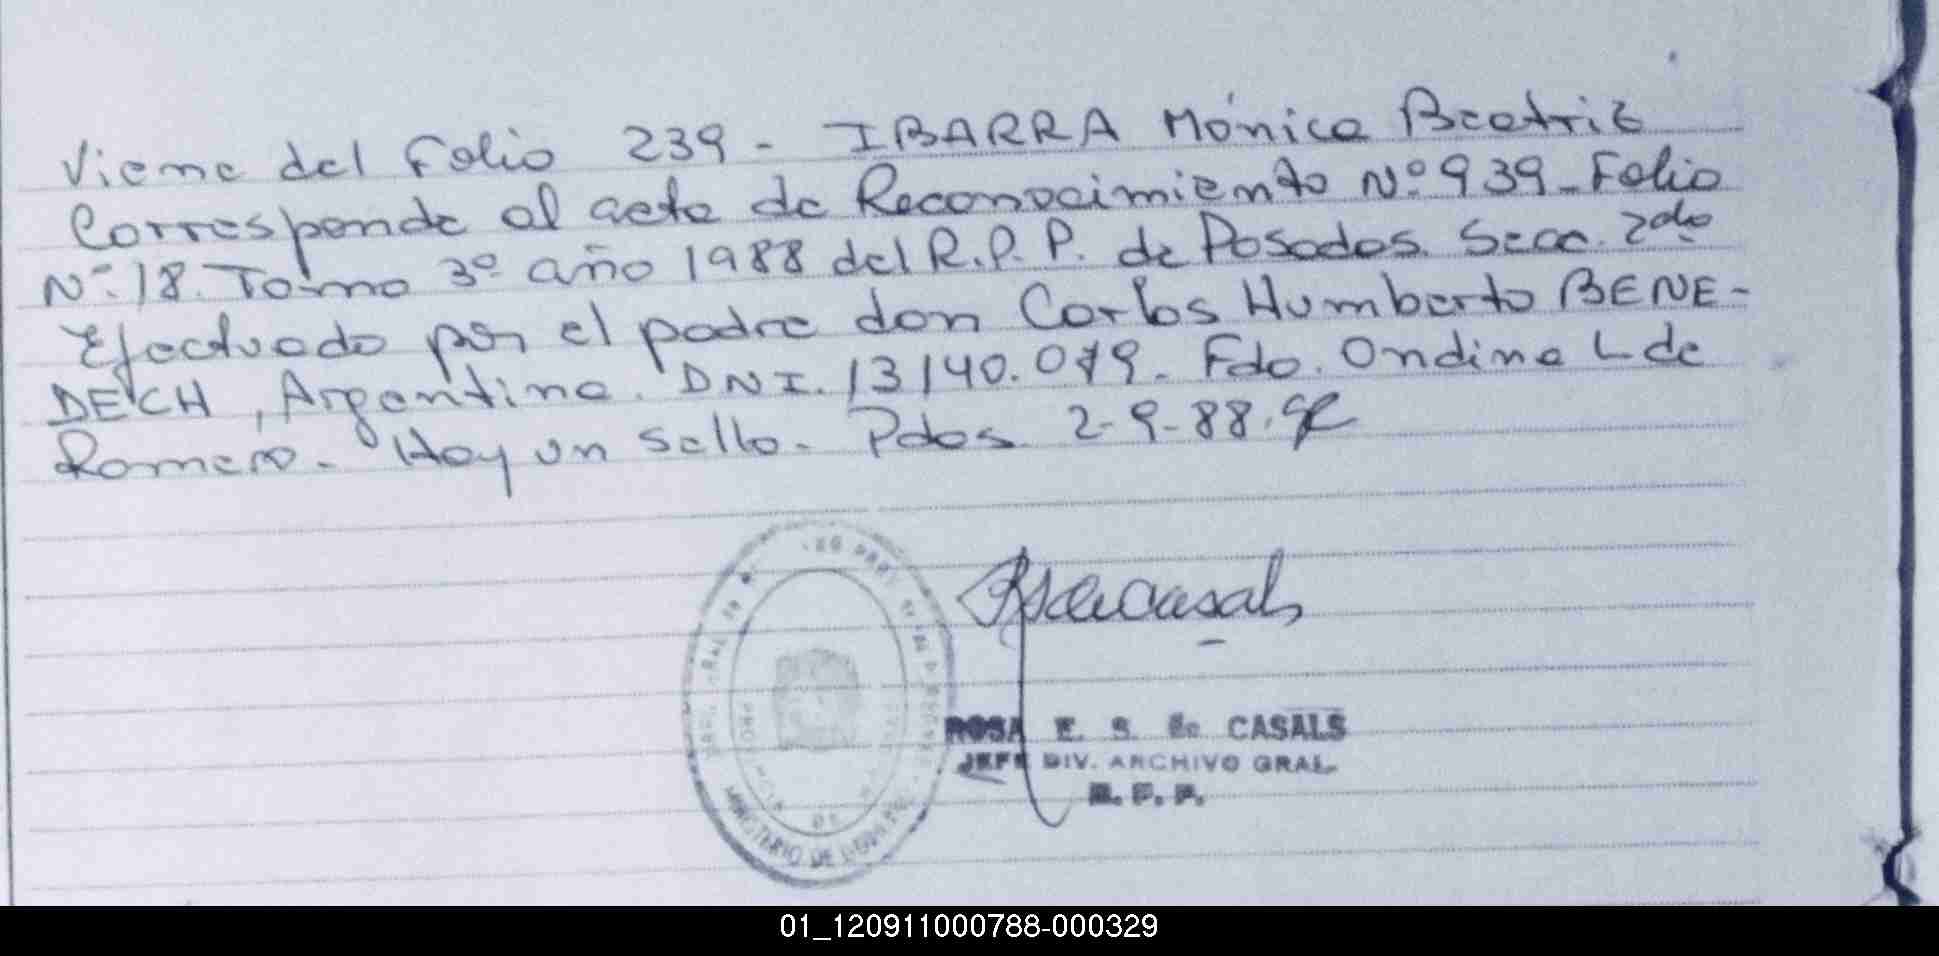 Viene del Folio 239 - IBARRA Mónica Beatriz
Corresponde al acta de Reconocimiento Nº 939 - Folio
Nº 18. Tomo 3º año 1988 del R.P.P. de Posadas. Secc. 2da
Efectuado por el padre don Carlos Humberto BENE-
DECH, Argentino. DNI. 13140.079. Fdo. Ondina L de
Romero. Hay un sello. Pdas 2-9-88.
ROSA E. S. de CASALS
JEFE DIV. ARCHIVO GRAL.
R. P. P.
MINISTERIO DE GOBIERNO
01_120911000788-000329